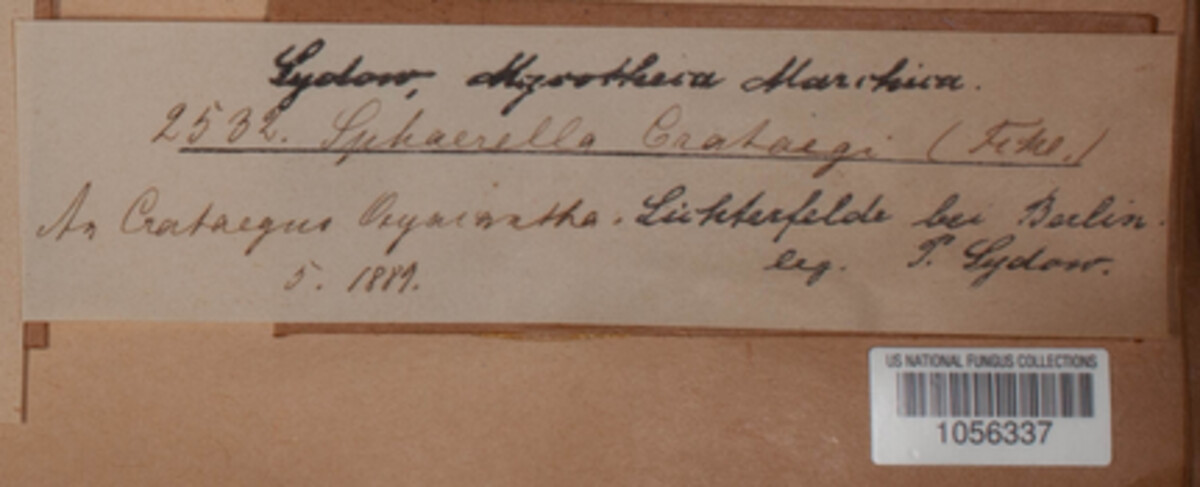 Sydow, Mycotheca Marchica.
2532. Sphaerella Crataegi (Fckl.)
An Crataegus Oxyacantha. Lichterfelde bei Berlin.
5. 1889. leg. P. Sydow.
US NATIONAL FUNGUS COLLECTIONS
1056337